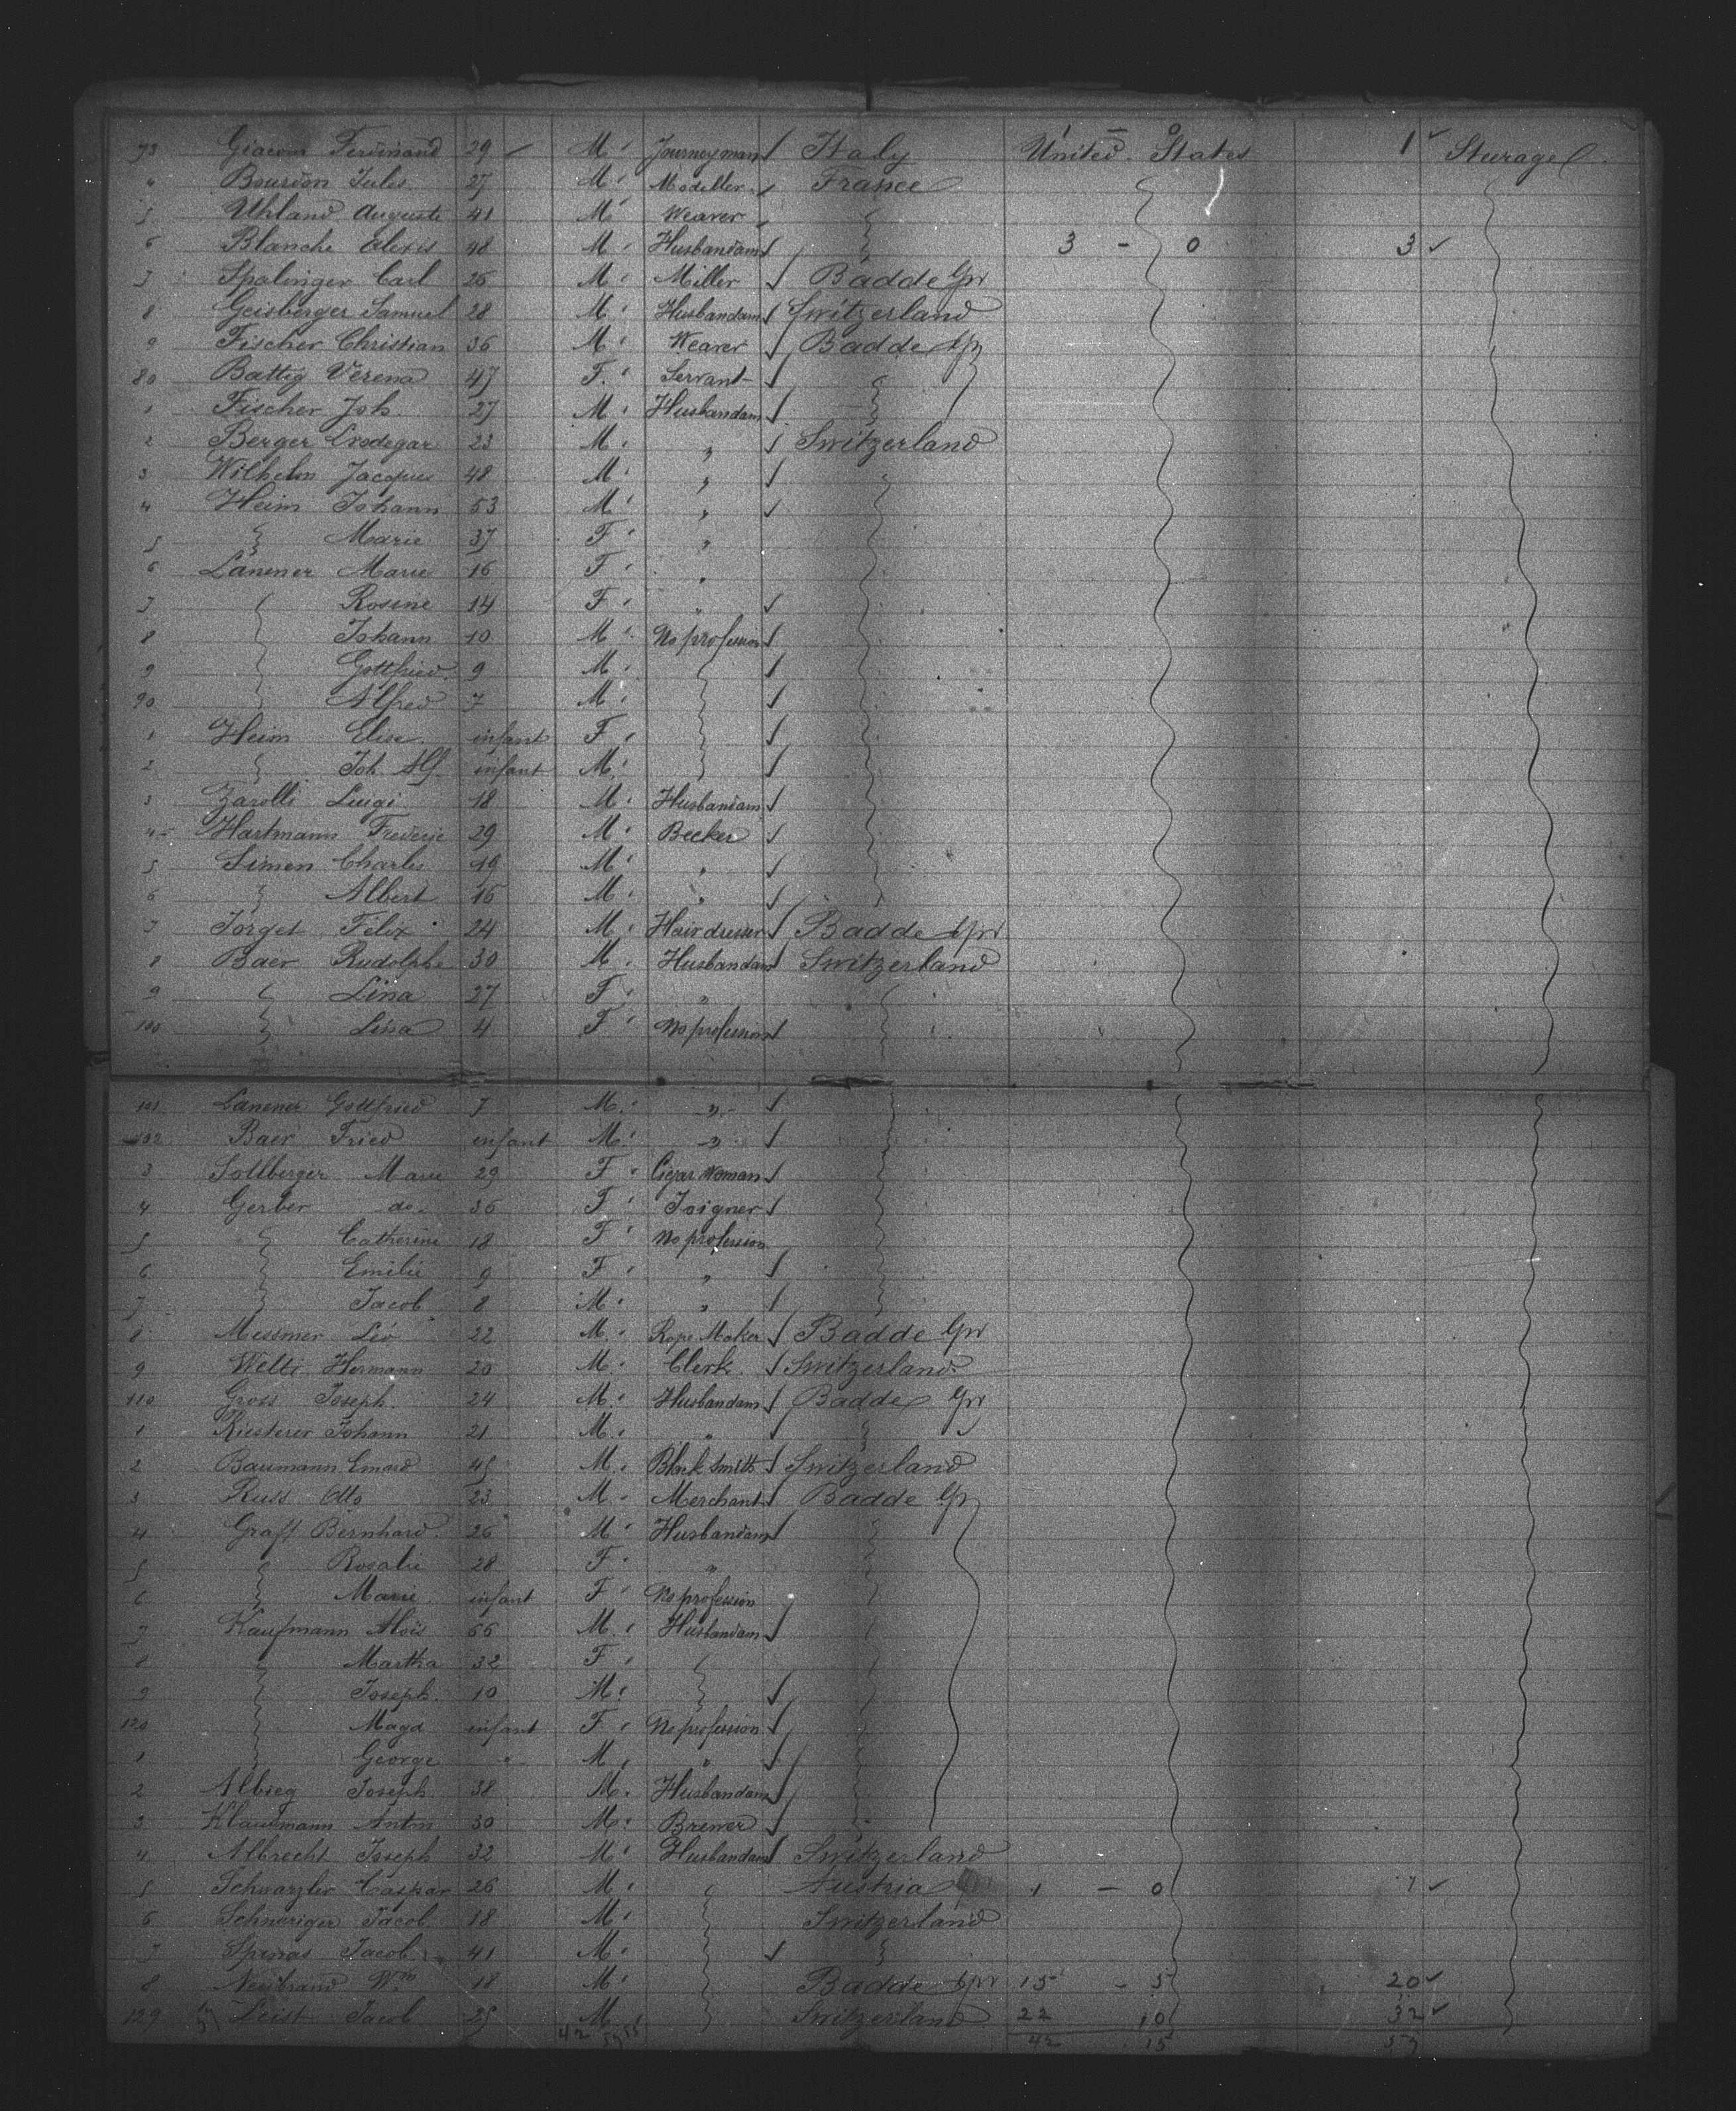 73 Giacom Ferdinand 29 M Journeyman Italy United States 1 Sturage
4 Bourdon Jules 27 M Modeller France
5 Uhland Auguste 41 M Weaver
6 Blanche Alexis 48 M Husbandam 3 - 0 3
7 Spalinger Carl 26 M Miller Badde Gr
8 Geisberger Samuel 28 M Husbandam Switzerland
9 Fischer Christian 36 M Weaver Badde
80 Battig Verena 47 F Servant
1 Fischer Joh 27 M Husbandam
2 Berger 23 M " Switzerland
3 Wilhelm Jacques 48 M "
4 Heim Johann 53 M "
5 Marie 37 F "
6 Lanener Marie 16 F "
7 Rosine 14 F "
8 Johann 10 M No profession
9 Gottfried 9 M
90 Alfred 7 M
1 Heim Elise infant F
2 Joh. Alf. infant M
3 Zarolli Luigi 18 M Husbandam
4 Hartmann Frederic 29 M Becker
5 Simen Charles 49 M "
6 Albert 16 M "
7 Jorget Felix 24 M Hairdresser Badde
8 Baer Rudolphe 30 M Husbandam Switzerland
9 Lina 27 F "
100 Lina 4 F No profession
101 Lanener Gottfried 7 M "
102 Baer Fried infant M "
3 Sollberger Marie 29 F Cigar Woman
4 Gerber do 36 F Joigner
5 Catherine 18 F No profession
6 Emilie 9 F "
7 Jacob 8 M "
8 Messmer Léo 22 M Rope Maker Badde Gr
9 Welti Hermann 20 M Clerk Switzerland
110 Gross Joseph 24 M Husbandam Badde Gr
1 Kiesterer Johann 21 M "
2 Baumann 45 M Black Smith Switzerland
3 Russ Otto 23 M Merchant Badde Gr
4 Graff Bernhard 26 M Husbandam
5 Rosalie 28 F "
6 Marie infant F No profession
7 Kaufmann Alois 66 M Husbandam
8 Martha 32 F
9 Joseph 10 M
120 Magd infant F No profession
1 George " M "
2 Albieg Joseph 38 M Husbandam
3 Klausmann Anton 30 M Brewer
4 Albrecht Joseph 32 M Husbandam Switzerland
5 Schwarzler Caspar 26 M Austria 1 - 0 1
6 Jacob 18 M Switzerland
7 Jacob 41 M
8 Neubrand Wm 18 M Badde 15 - 5 20
129 Leist Jacob 25 M Switzerland 22 10 32
42 42 15 57